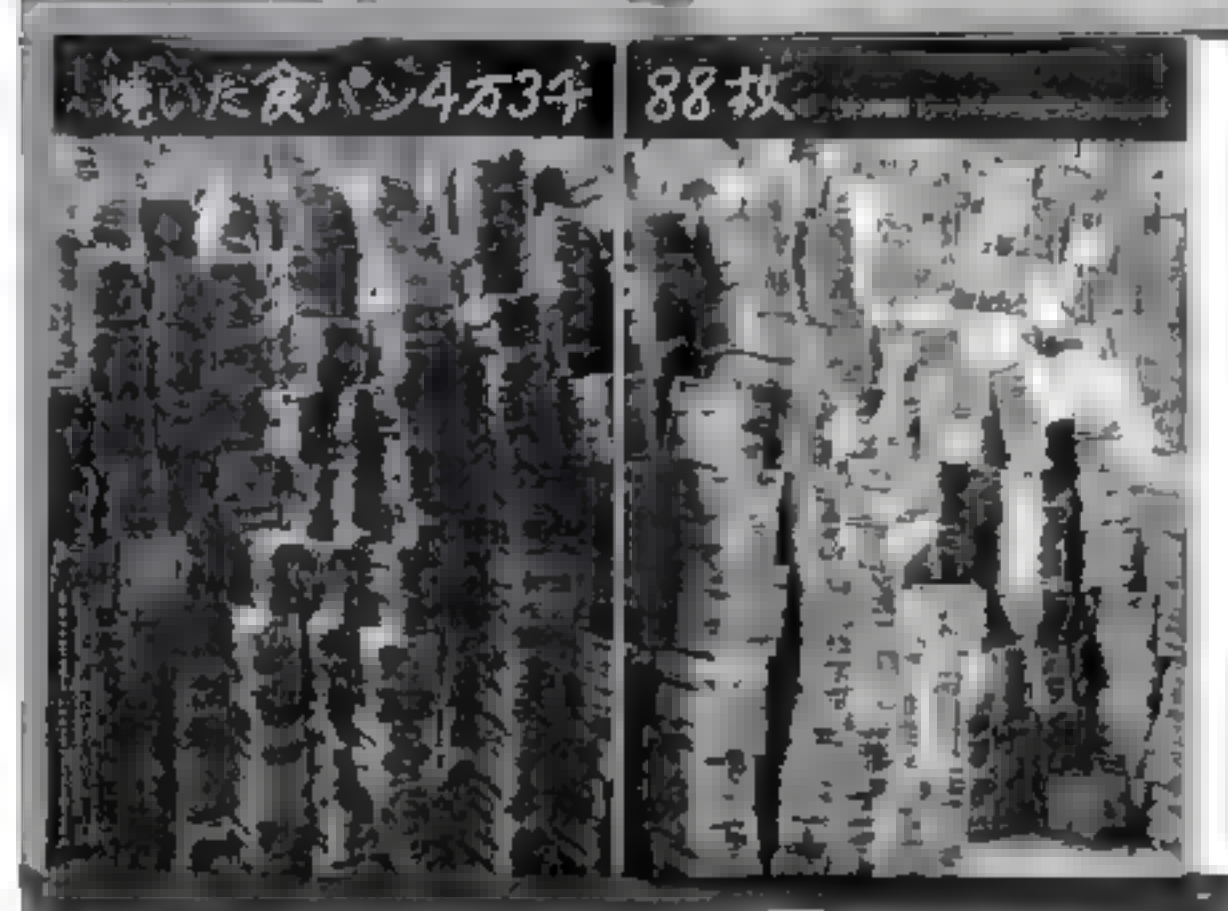 焼いた食パン4万3千
88枚